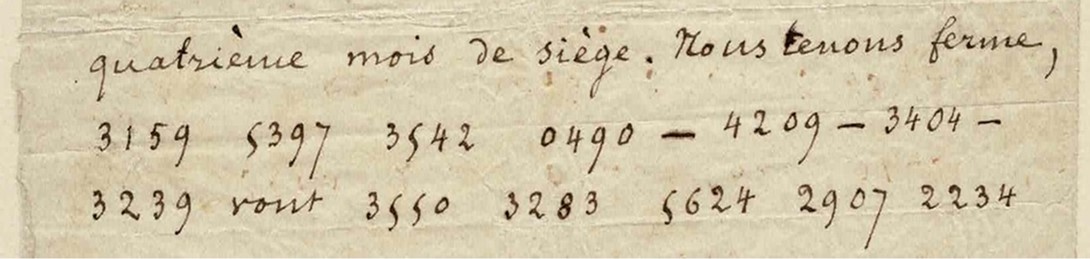 quatrième mois de siège. Nous tenons ferme,
3159 5397 3542 0490 — 4209 — 3404 —
3239 ront 3550 3283 5624 2907 2234